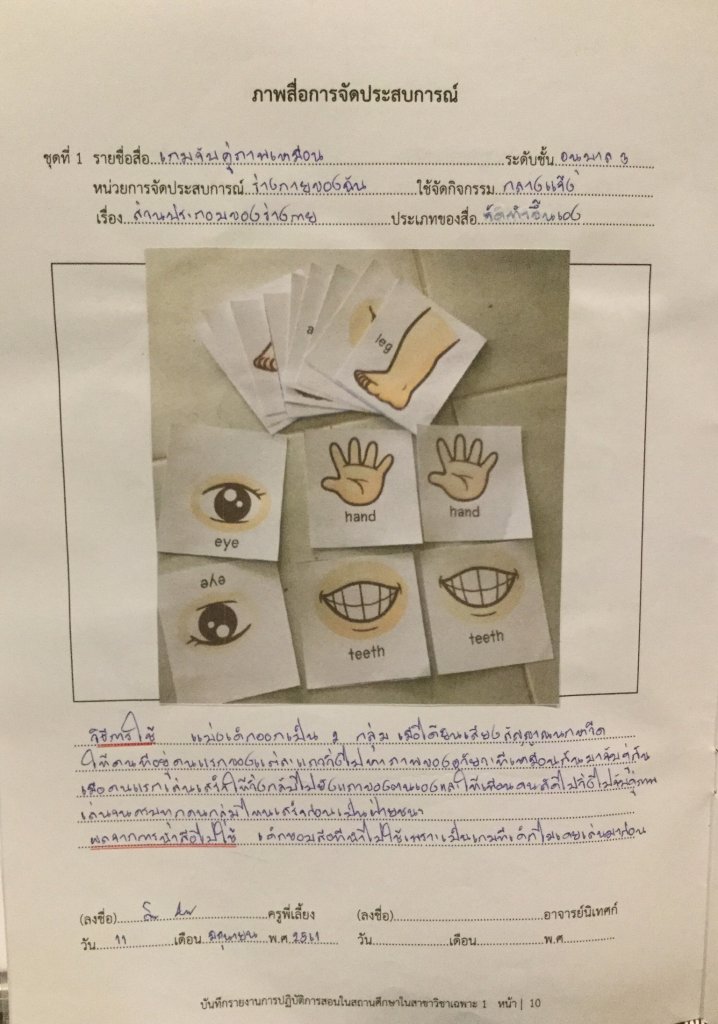 ภาพสื่อการจัดประสบการณ์
ชุดที่ 1 รายชื่อสื่อ..เกมจับคู่ภาพเหมือน..........ระดับชั้น..อนุบาล 3
หน่วยการจัดประสบการณ์..ร่างกายของฉัน..........ใช้จัดกิจกรรม..กลางแจ้ง
เรื่อง..ส่วนประกอบของร่างกาย..........ประเภทของสื่อ..จัดทำขึ้นเอง
a
leg
eye
hand
hand
eye
teeth
teeth
วิธีการใช้ แบ่งเด็กออกเป็น 2 กลุ่ม เมื่อได้ยินเสียงสัญญาณนกหวีด
ให้คนที่อยู่คนแรกของแต่ละแถววิ่งไปหาภาพของอวัยวะที่เหมือนกันมาจับคู่กัน
เมื่อคนแรกเล่นเสร็จให้วิ่งกลับไปยังแถวของตนเองและให้เพื่อนคนถัดไปวิ่งไปจับคู่ภาพ
เล่นจนครบทุกคนกลุ่มไหนเสร็จก่อนเป็นฝ่ายชนะ
ผลจากการนำสื่อไปใช้ เด็กชอบสื่อที่นำไปใช้เพราะเป็นเกมที่เด็กไม่เคยเล่นมาก่อน
(ลงชื่อ)..........ครูพี่เลี้ยง (ลงชื่อ)..........อาจารย์นิเทศก์
วัน..11..เดือน..มิถุนายน..พ.ศ.2561 วัน..........เดือน..........พ.ศ...........
บันทึกรายงานการปฏิบัติการสอนในสถานศึกษาในสาขาวิชาเฉพาะ 1 หน้า | 10